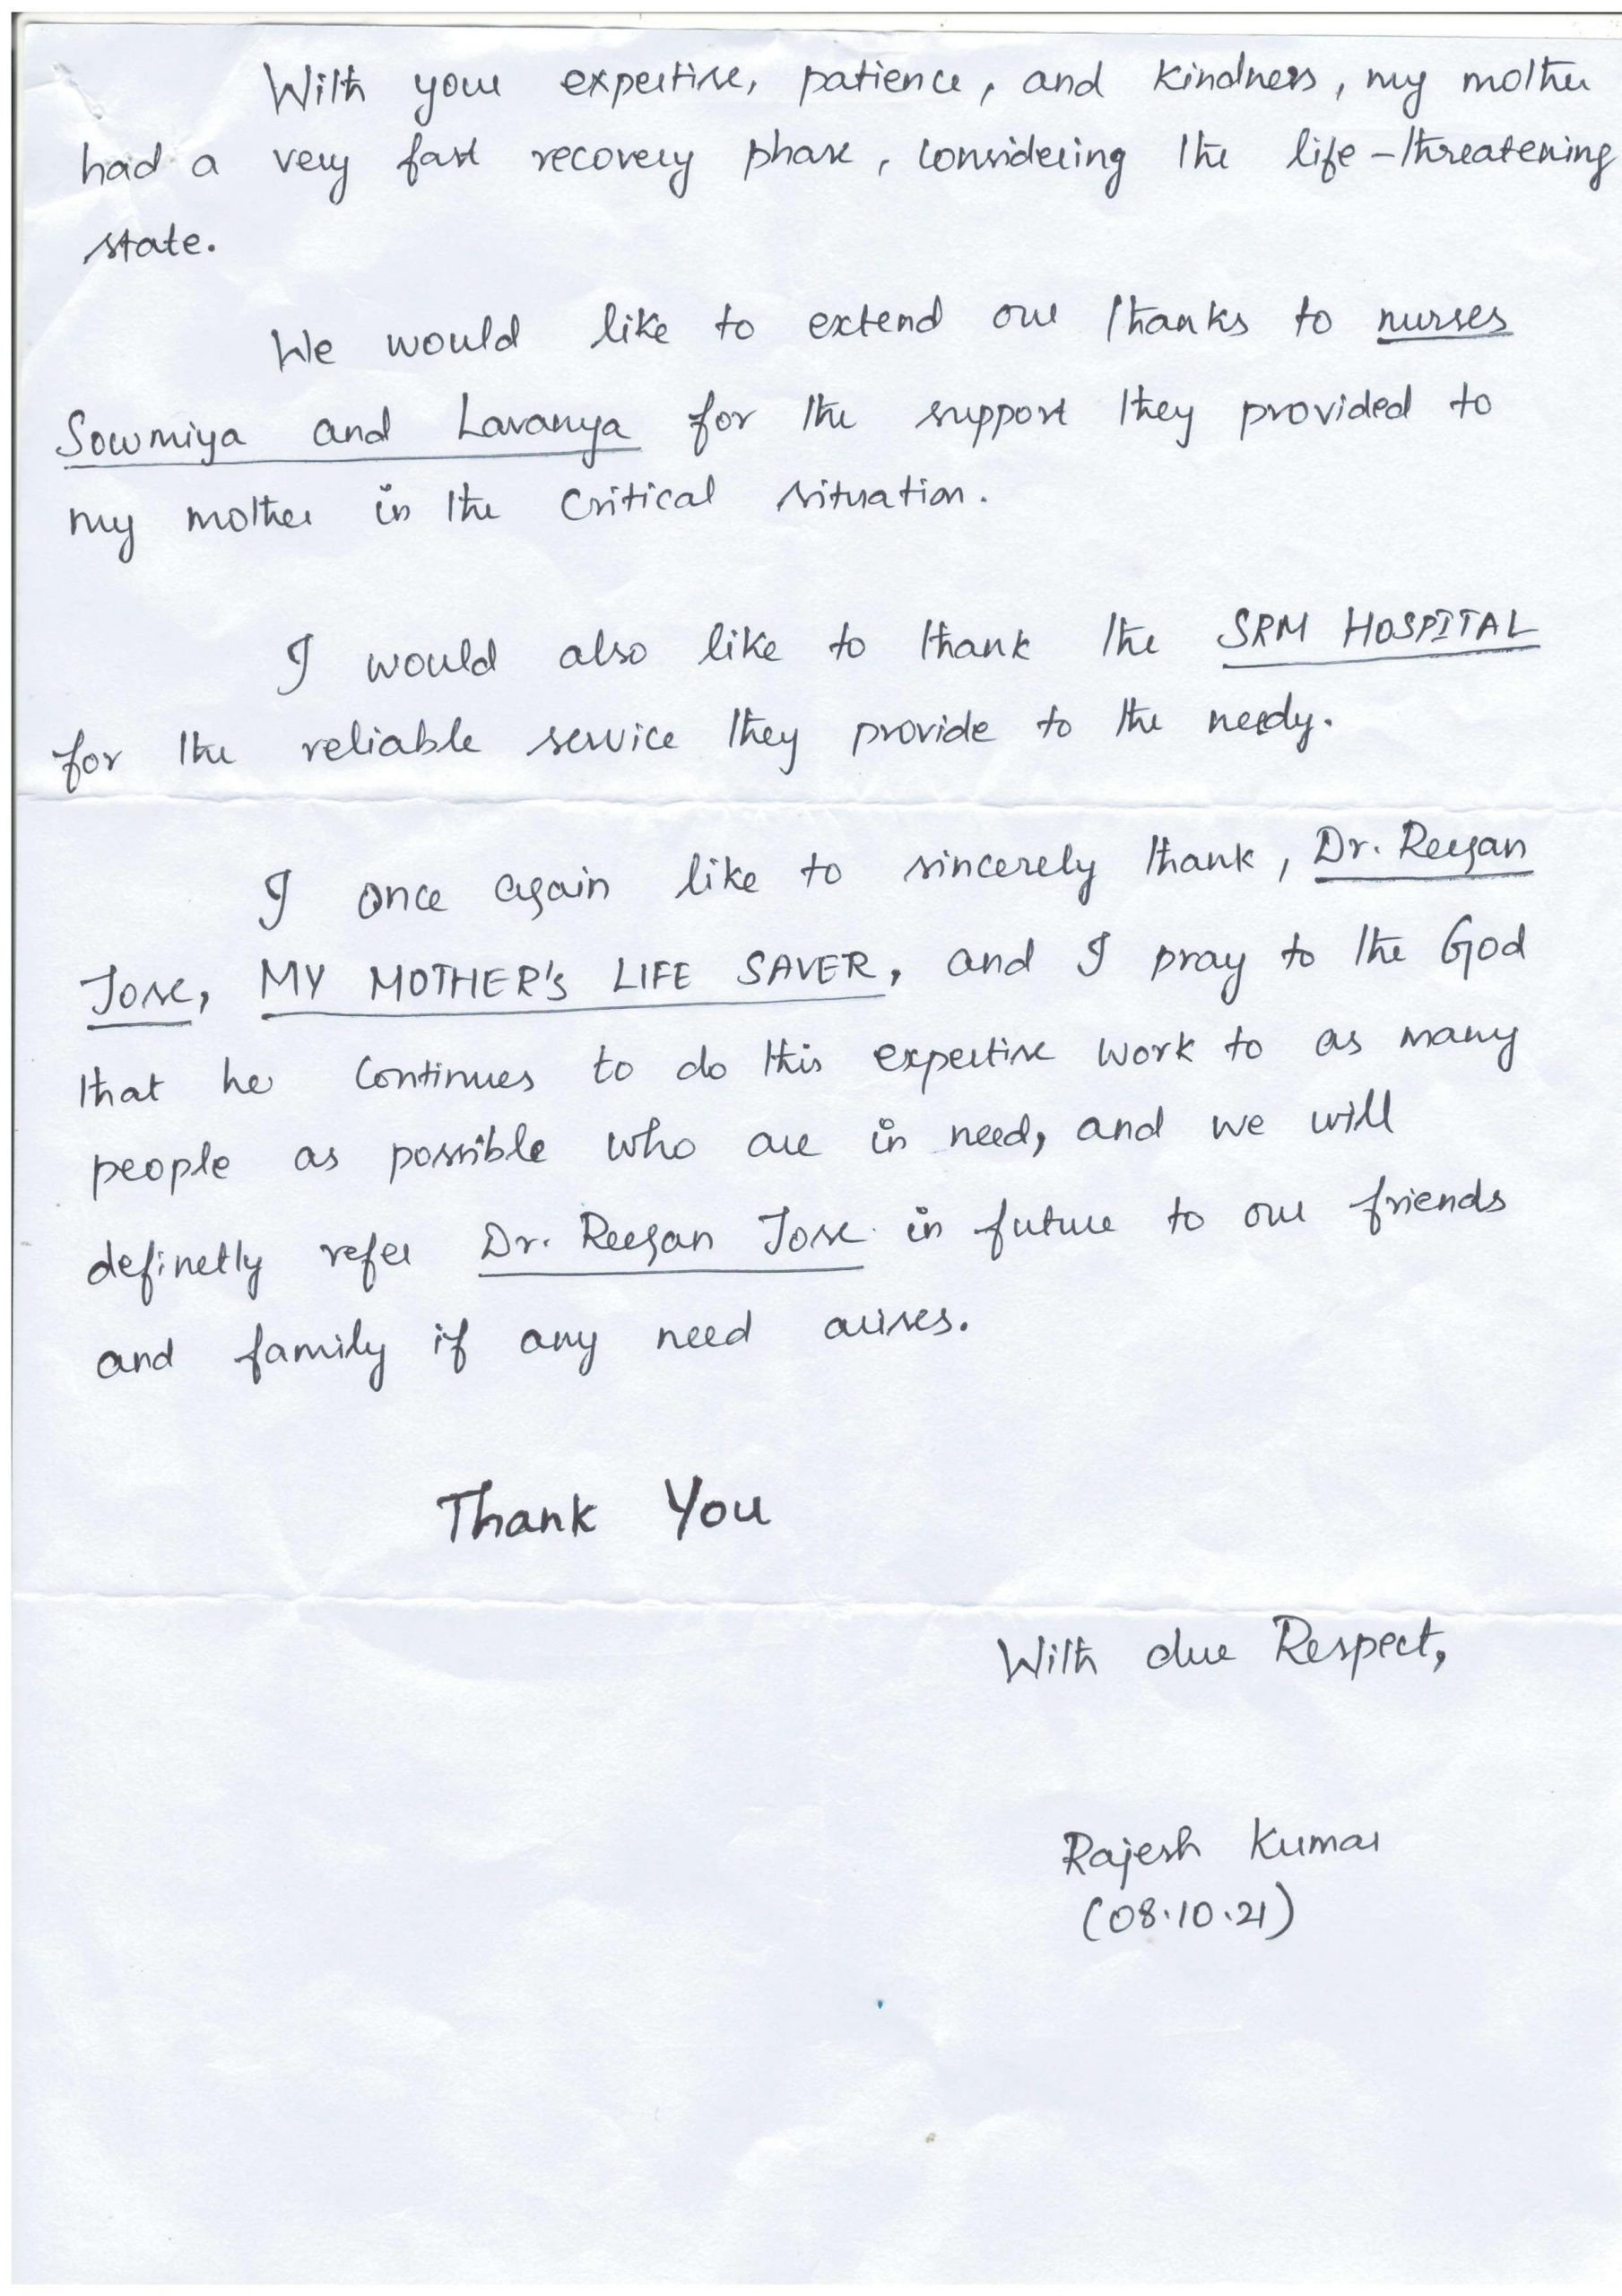 With your expertise, patience, and kindness, my mother
had a very fast recovery phase, considering the life-threatening
state.
We would like to extend our thanks to nurses
Sowmiya and Lavanya for the support they provided to
my mother in the critical situation.
I would also like to thank the SRM HOSPITAL
for the reliable service they provide to the needy.
I once again like to sincerely thank, Dr. Reegan
Jose, MY MOTHER's LIFE SAVER, and I pray to the God
that he continues to do this expertise work to as many
people as possible who are in need, and we will
definetly refer Dr. Reegan Jose in future to our friends
and family if any need arises.
Thank You
With due Respect,
Rajesh Kumar
(08.10.21)